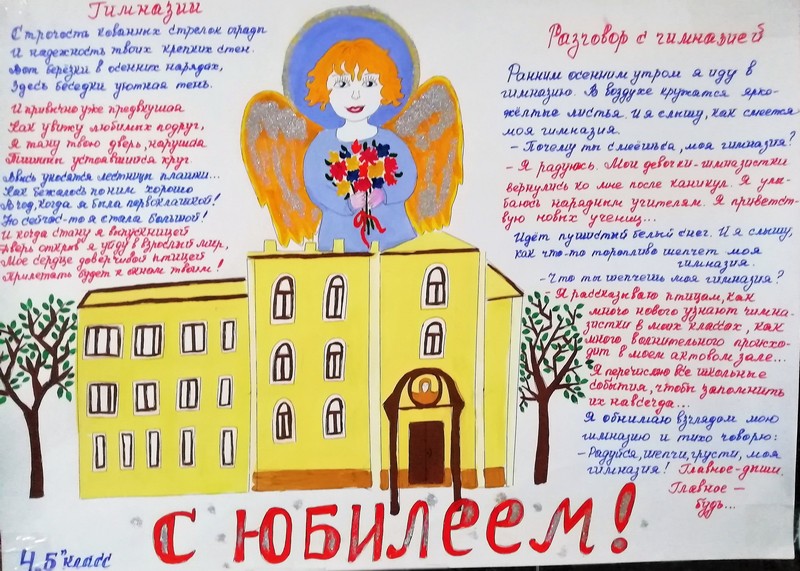 Гимназии
Строгость кованных стрелок оград
И надежность твоих крепких стен.
Вот берёзки в осенних нарядах,
Здесь беседки уютная тень.
И привычно уже предвкушая
Как увижу любимых подруг,
Я тяну твою дверь, нарушая
Тишины устоявшийся круг.
Ввысь уносятся лестницы плашки...
Как бежалось по ним хорошо
В год, когда я была первоклашкой!
Но сейчас-то я стала большой!
И когда стану я выпускницей
Дверь открыв я уйду в взрослый мир,
Мое сердце доверчивой птицей
Прилетать будет к окнам твоим!
Разговор с гимназией
Ранним осенним утром я иду в
гимназию. В воздухе кружатся ярко-
жёлтые листья. И я слышу, как смеется
моя гимназия.
- Почему ты смеёшься, моя гимназия?
- Я радуюсь. Мои девочки-гимназистки
вернулись ко мне после каникул. Я улы-
баюсь нарядным учителям. Я приветст-
вую новых учениц...
Идёт пушистый белый снег. И я слышу,
как что-то торопливо шепчет моя
гимназия.
- Что ты шепчешь моя гимназия?
- Я рассказываю птицам, как
много нового узнают гимна-
зистки в моих классах, как
много волнительного происхо-
дит в моем актовом зале...
Я перечисляю все школьные
события, чтобы запомнить
их навсегда...
Я обнимаю взглядом мою
гимназию и тихо говорю:
- Радуйся, шепчи, грусти, моя
гимназия! Главное-дыши.
Главное -
будь...
С ЮБИЛЕЕМ!
4 "Б" класс